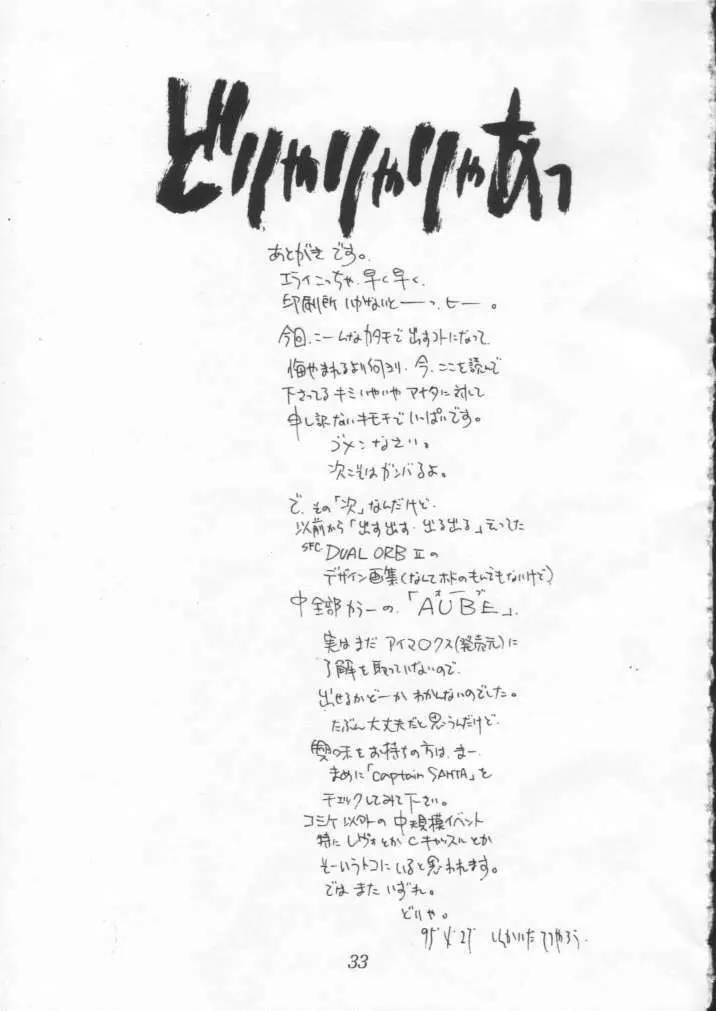 どりゃりゃりゃあっ
あとがきです。
エライこっちゃ、早く早く、
印刷所いかないとーっ、ヒー。
今回、こーんなカタチで出すコトになって、
悔やまれるより何より、今、ここを読んで
下さってるキミいやいやアナタに対して
申し訳ないキモチでいっぱいです。
ゴメンなさい。
次こそはガンバるよ。
で、その「次」なんだけど、
以前から「出す出す・出る出る」言ってた
SFC DUAL ORB Ⅱの
デザイン画集(なんてホドのもんでもないけど)
中全部カラーの、「AUBE」、
オーブ
実はまだ アイマ○クス(発売元)に
了解を取っていないので、
出せるかどーか わかんないのでした。
たぶん大丈夫だと思うんだけど、
興味をお持ちの方は、まー、
まめに「Captain SANTA」を
チェックしてみて下さい。
コミケ以外の中規模イベント
特にレヴォとかCキャッスルとか
そーいうトコにいると思われます。
では またいずれ。
どりゃ。
95' 4' 27'
33